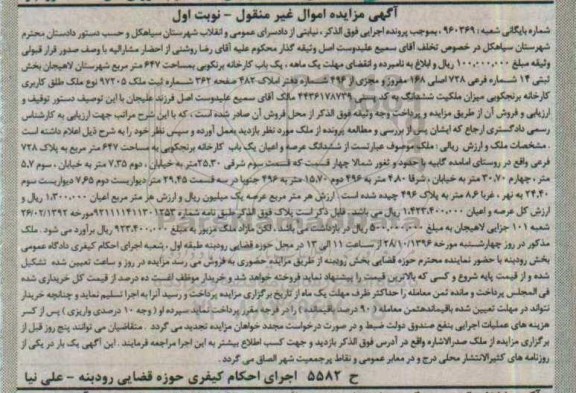 آگهی مزایده اموال غیر منقول – نوبت اول
شماره بایگانی شعبه : ۹۶۰۳۶۹ ، بموجب پرونده اجرایی فوق الذکر ، نیابتی از دادسرای عمومی و انقلاب شهرستان سیاهکل و حسب دستور دادستان محترم
شهرستان سیاهکل در خصوص تخلف آقای سمیع علیدوست اصل وثیقه گذار محکوم علیه آقای رضا روشنی از احضار مشارالیه با وصف صدور قرار قبولی
وثیقه مبلغ ۱۰۰،۰۰۰،۰۰۰ ریال و ابلاغ به نامبرده و انقضای مهلت یک ماهه ، یک باب کارخانه برنجکوبی بمساحت ۶۴۷ متر مربع شهرستان لاهیجان بخش
ثبتی ۱۴ شماره فرعی ۷۲۸ اصلی ۱۶۸ مفروز و مجزی از ۴۹۶ شماره دفتر املاک ۴۸۲ صفحه ۳۶۲ شماره ثبت ملک ۹۷۲۰۵ نوع ملک طلق کاربری
کارخانه برنجکوبی میزان مالکیت ششدانگ مالک آقای سمیع علیدوست اصل فرزند علیجان با این توصیف دستور توقیف و
ارزیابی و فروش آن از طریق مزایده و پرداخت وجه وثیقه فوق الذکر از محل فروش آن صادر شده است ، که با این شرح مراتب جهت ارزیابی به کارشناس
رسمی دادگستری ارجاع که ایشان پس از بررسی و مطالعه پرونده از ملک مورد نظر بازدید بعمل آورده و سپس نظر خود را به شرح ذیل اعلام داشته است
. مشخصات ملک و ارزش ریالی : ملک موصوف عبارتست از ششدانگ عرصه و اعیان یک باب کارخانه برنجکوبی به مساحت ۶۴۷ متر مربع به پلاک ۷۲۸
فرعی واقع در روستای امامده گلبپه با حدود و ثغور شمالا چهار قسمت که قسمت سوم شرقی ۲۵،۳۰متر به خیابان ، دوم ۷،۳۵ متر به خیابان ، سوم ۵،۷
متر ، چهارم ۳۰،۷۰ متر به خیابان ، شرقا ۴،۸۰ متر به ۴۹۶ دوم ۱۵،۷۰ متر به ۴۹۶ جنوبا در سه قسمت ۲۹،۴۵ متر دیواریست دوم ۷،۶۵ دیواریست سوم
۲۴،۴۰ به نهر ، غربا ۸،۶ متر به پلاک ۴۹۶ چیده شده است . ارزش هر متر مربع عرصه یک میلیون ریال و ارزش هر متر مربع اعیان ۱،۳۰۰،۰۰۰ ریال و
ارزش کل عرصه و اعیان ۱،۴۲۳،۴۰۰،۰۰۰ ریال می باشد . قابل ذکر است پلاک فوق الذکر طبق نامه شماره مورخه ۲۶/۰۲/۱۳۹۲
شعبه ۱۰۱ جزایی لاهیجان به مبلغ ۵۰۰،۰۰۰،۰۰۰ ریال در بازداشت می باشد ، لکن مازاد ملک مزبور به مبلغ ۹۲۳،۴۰۰،۰۰۰ ریال برآورد می شود . ملک
مذکور در روز چهارشنبه مورخه ۲۸/۱۰/۱۳۹۶ از ساعت ۱۱ الی ۱۳ در محل حوزه قضایی رودبنه طبقه اول ، شعبه اجرای احکام کیفری دادگاه عمومی
بخش رودبنه با حضور نماینده محترم حوزه قضایی بخش رودبنه از طریق مزایده حضوری به فروش می رسد مزایده در روز و ساعت تعیین شده تشکیل
شده و از قیمت پایه شروع و کسی که بالاترین قیمت را پیشنهاد نماید فروخته خواهد شد و خریدار موظف است ده درصد از قیمت کل خریداری شده
فی المجلس پرداخت و مانده ثمن معامله را حداکثر ظرف مهلت یک ماه از تاریخ برگزاری مزایده پرداخت و رسید آنرا به اجرا تسلیم نماید و چنانچه خریدار
نتواند در مهلت تعیین شده باقیمانده ثمن معامله ( ۹۰ درصد باقیمانده ) را در فرجه مقرر پرداخت نماید سپرده او ( وجه ۱۰ درصدی واریزی ) پس از کسر
هزینه های عملیات اجرایی بنفع صندوق دولت ضبط و در صورت درخواست مجدد خواهان مزایده تجدید می گردد . متقاضیان می توانند پنج روز قبل از
برگزاری مزایده از ملک صدرالاشاره واقع در آدرس فوق الذکر بازدید و جهت کسب اطلاع بیشتر به این اجرا مراجعه فرمایند . این آگهی یک بار در یکی از
روزنامه های کثیرالانتشار محلی درج و در معابر عمومی و نقاط پرجمعیت شهر الصاق می گردد.
ح ۵۵۸۲ اجرای احکام کیفری حوزه قضایی رودبنه – علی نیا